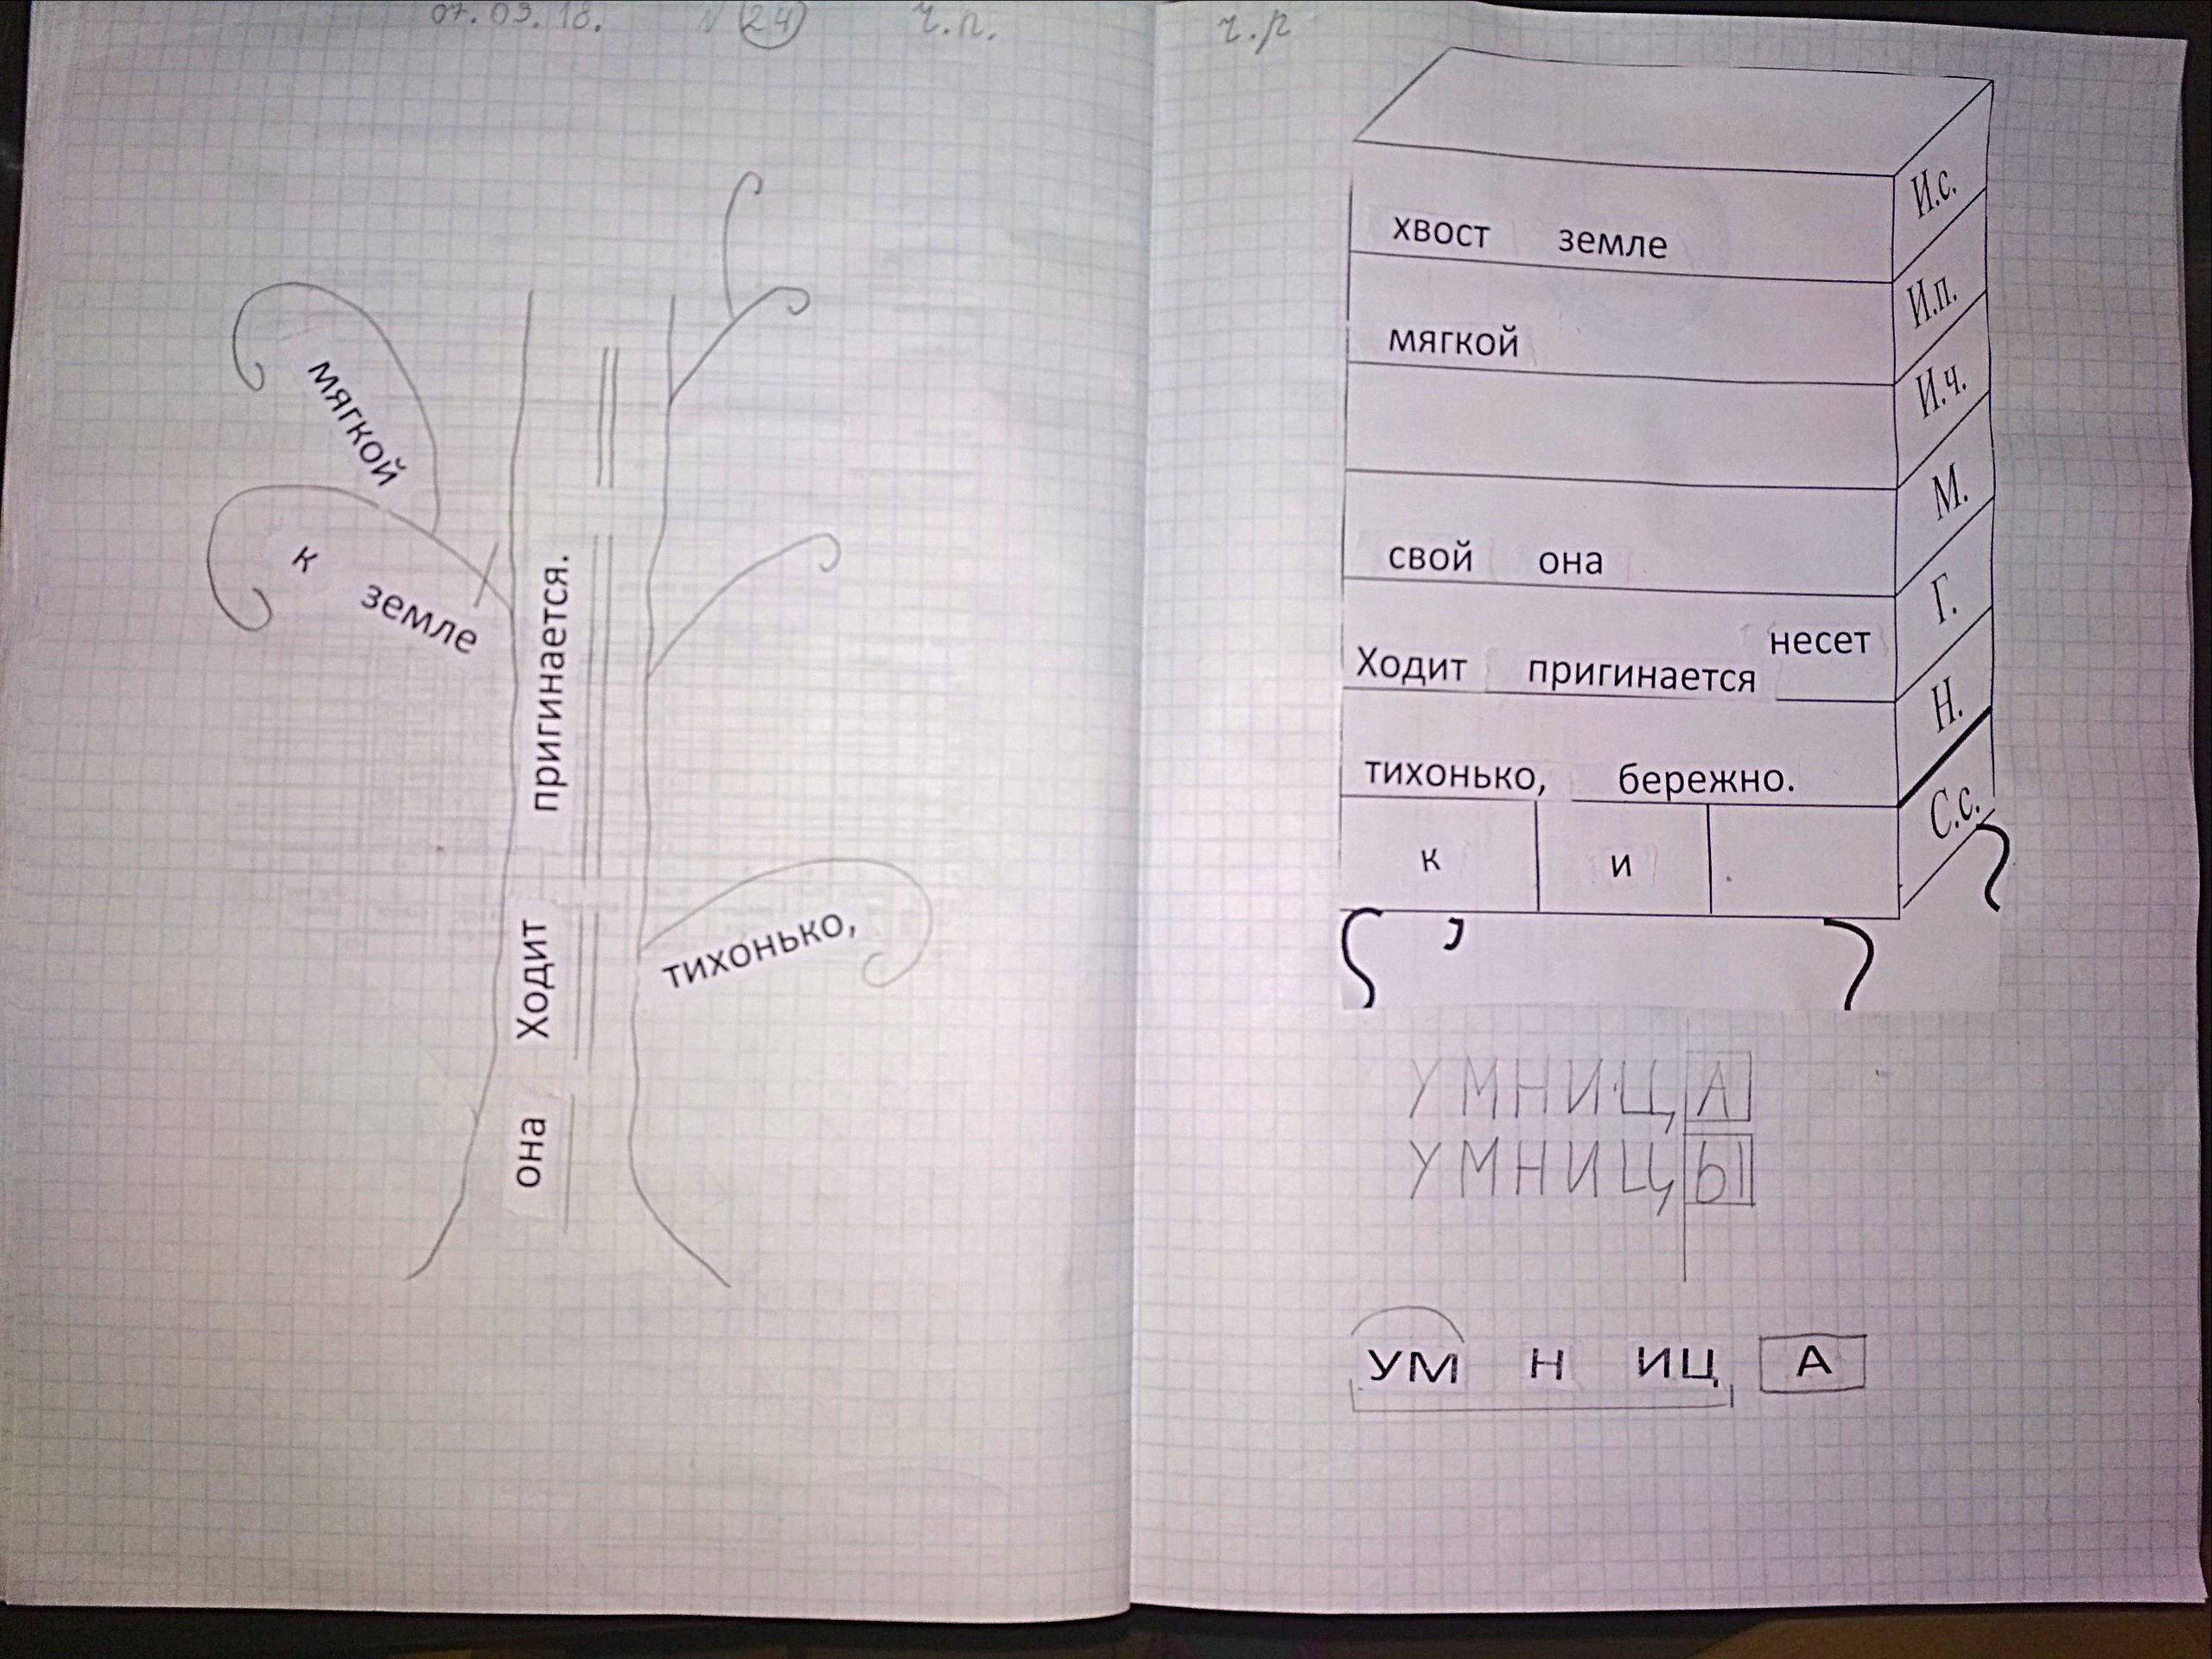 07.03.18. N 24 ч.п.
мягкой
к земле
пригинается.
Ходит
она
тихонько,
ч.р
хвост земле И.с.
мягкой И.п.
И.ч.
свой она М.
Ходит пригинается несет Г.
тихонько, бережно. Н.
к и С.с.
УМНИЦА
УМНИЦЫ
УМ Н ИЦ А